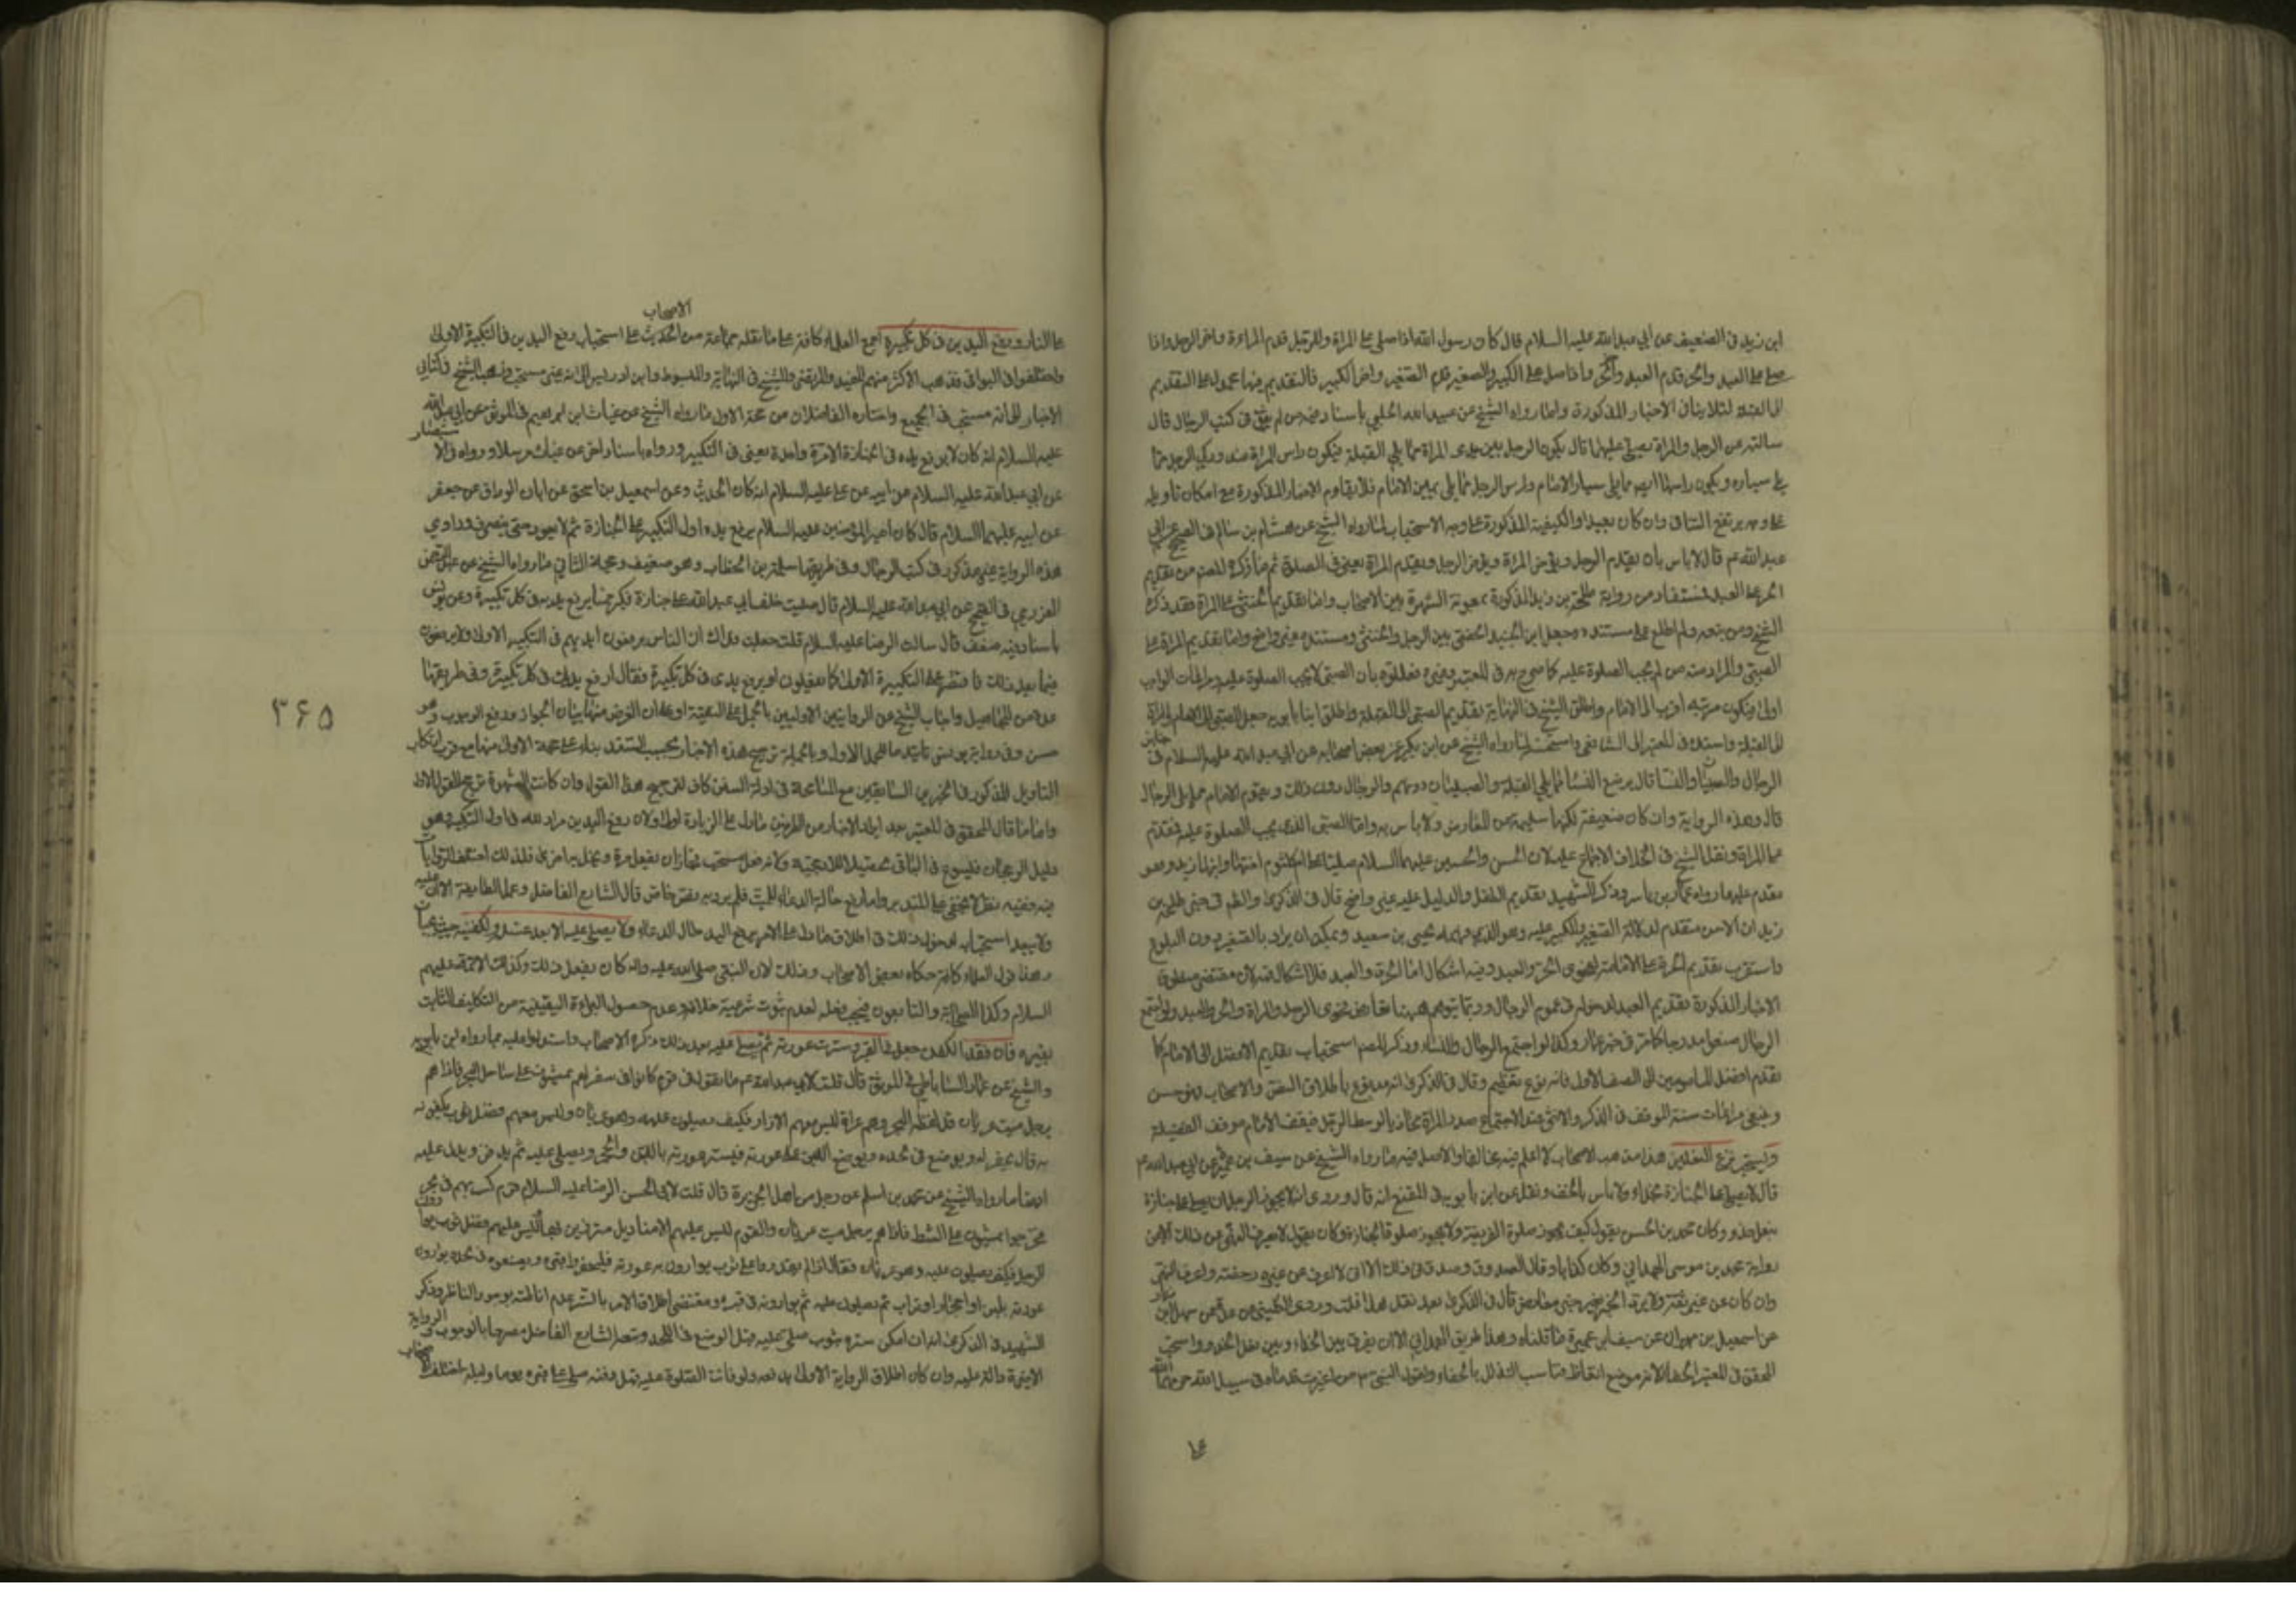 ابن زيد في الضعيف عن أبي عبد الله عليه السلام قال كان رسول الله اذا صلى على المراة والرجل قدم المراة واخر الرجل واذا
صلى على العبد والحر قدم العبد واخر الحر واذا صلى على الكبير والصغير قدم الصغير واخر الكبير فالتقديم فيها محمول على التقديم
الى القبلة لئلا ينافي الاخبار المذكورة واما رواه الشيخ عن عبيد الله الحلبي باسناد فيه من لم يوثق في كتب الرجال قال
سالته عن الرجل والمراة يصلى عليهما قال يكون الرجل بين يدي المراة مما يلي القبلة فيكون راس المراة عند وركي الرجل مما
يلي يساره ويكون راسها ايضا مما يلي يسار الامام وراس الرجل مما يلي يمين الامام فلا يقاوم الاخبار المذكورة مع امكان تاويله
على وجه يرتفع التنافي وان كان بعيدا والكيفية المذكورة على وجه الاستحباب لما رواه الشيخ عن هشام بن سالم في الصحيح عن ابي
عبد الله ع قال لا باس بان يقدم الرجل ويؤخر المراة ويؤخر الرجل ويقدم المراة يعني في الصلوة ثم ما ذكره المصنف من تقديم
الحر على العبد مستفاد من رواية طلحة بن زيد المذكورة بمعونة الشهرة بين الاصحاب واما تقديم الخنثى على المراة فقد ذكره
الشيخ ومن تبعه ولم اطلع على مستنده وجعل ابن الجنيد الخصي بين الرجل والخنثى ومستنده غير واضح واما تقديم المراة على
الصبي والمراد منه من لم يجب الصلوة عليه كما صرح به في المعتبر وغيره فعللوه بان الصبي لا يجب الصلوة عليه ومراعات الواجب
اولى فيكون مرتبته اقرب الى الامام واطلق الشيخ في النهاية تقديم الصبي الى القبلة واطلق ابنا بابويه جعل الصبي الى الامام والمراة
الى القبلة واسنده في المعتبر الى الشافعي واستحسنه لما رواه الشيخ عن ابن بكير عن بعض اصحابه عن ابي عبد الله عليه السلام في جنايز
الرجال والصبيان والنساء قال يوضع النساء مما يلي القبلة والصبيان دونهم والرجال دون ذلك ويقوم الامام مما يلي الرجال
قال وهذه الرواية وان كان ضعيفة لكنها سليمة عن المعارض ولا باس به واما الصبي الذي يجب الصلوة عليه فيقدم
على المراة ونقل الشيخ في الخلاف الاجماع عليه لان الحسن والحسين عليهما السلام صليا على ام كلثوم اختهما وابنها زيد وهو
مقدم عليها رواه عمار بن ياسر وذكر الشهيد تقديم الطفل والدليل عليه غير واضح قال في الذكرى والظم في خبر طلحة بن
زيد ان الاسن متقدم لدلالة الصغير والكبير عليه وهو الذي فهمه يحيى بن سعيد ويمكن ان يراد بالصغير دون البلوغ
واستقرب تقديم الحرة على الامة لفحوى الحر والعبد وفيه اشكال اما الحرة والعبد فلا اشكال فيه لان مقتضى
الاخبار المذكورة تقديم العبد لدخوله في عموم الرجال وربما يتوهم ههنا تعارض فحوى الرجل والمراة والحر والعبد ولو اجتمع
الرجال صفوا مدرجا كما مر في خبر عمار وكذا لو اجتمع الرجال والنساء وذكر المصنف استحباب تقديم الافضل الى الامام كما
يقدم افضل المامومين الى الصف الاول فانه نوع تعظيم وقال في الذكرى انه مدفوع باطلاق النص والاصحاب وهو حسن
وينبغي مراعات سنة الموقف في الذكر والانثى عند الاجتماع صدر المراة محاذيا لوسط الرجل فيقف الامام موقف الفضيلة
ويستحب نزع النعلين هذا مذهب الاصحاب لا اعلم فيه مخالفا والاصل فيه ما رواه الشيخ عن سيف بن عميرة عن ابي عبد الله ع
قال لا يصلى على الجنازة بحذاء ولا باس بالخف ونقل عن ابن بابويه في المقنع انه قال وروى انه لا يجوز للرجل ان يصلى على جنازة
بنعل حذو وكان محمد بن الحسن يقول كيف يجوز صلوة الفريضة ولا يجوز صلوة الجنازة وكان يقول لا نعرف النهي عن ذلك الا من
رواية محمد بن موسى الهمداني وكان كذابا قال الصدوق وصدق في ذلك الا اني لا اعرف عن غيره رخصته واعرف النهي
وان كان عن غير ثقة ولا يرد الخبر بغير خبر معارض قال في الذكرى بعد نقل هذا قلت وروى الكليني عن عدة عن سهل بن زياد
عن اسمعيل بن مهران عن سيف بن عميرة ما قلناه وهذا طريق غير الهمداني الا ان يفرق بين الحذاء وبين نعل الحذو واستحب
المحقق في المعتبر الحفا لانه موضع اتعاظ فناسب التذلل بالحفاء ولقول النبي ص من اغبرت قدماه في سبيل الله حرمهما الله
على
الاصحاب
على النار ورفع اليدين في كل تكبيرة اجمع العلماء كافة على ما نقله جماعة من على استحباب رفع اليدين في التكبيرة الاولى
واختلفوا في البواقي فذهب الاكثر منهم المفيد والمرتضى والشيخ في النهاية والمبسوط وابن ادريس الى انه غير مستحب وذهب الشيخ في كتابي
الاخبار الى انه مستحب في الجميع واختاره الفاضلان من حجة الاول ما رواه الشيخ عن غياث بن ابراهيم في الموثق عن ابي عبد الله
عليه السلام انه كان لا يرفع يده في الجنازة الا مرة واحدة يعني في التكبير ورواه باسناد اخر عن غياث مرسلا ورواه في الاستبصار
عن ابي عبد الله عليه السلام عن ابيه عن علي عليه السلام انه كان الحديث وعن اسمعيل بن اسحق عن ابان الوراق عن جعفر
عن ابيه عليهما السلام قال كان امير المؤمنين عليه السلام يرفع يده اول التكبير على الجنازة ثم لا يعود حتى ينصرف وراوي
هذه الرواية غير مذكور في كتب الرجال وفي طريقها سلمة بن الخطاب وهو ضعيف وحجة الثاني ما رواه الشيخ عن عبد الرحمن
العزرمي في الصحيح عن ابي عبد الله عليه السلام قال صليت خلف ابي عبد الله على جنازة فكبر خمسا يرفع يديه في كل تكبيرة وعن يونس
باسناد فيه ضعف قال سالت الرضا عليه السلام قلت جعلت فداك ان الناس يرفعون ايديهم في التكبير الاولى ولا يرفعون
فيما بعد ذلك فاقتصر على التكبيرة الاولى كما يفعلون او يرفع يدي في كل تكبيرة فقال ارفع يدك في كل تكبيرة وفي طريقها
عدة من المجاهيل واجاب الشيخ عن الروايتين الاوليين بالحمل على التقية او على ان الغرض منهما بيان الجواز ورفع الوجوب وهو
حسن وفي رواية يونس تاييد ما للحمل الاول وبالجملة ترجيح هذه الاخبار بحسب السند بناء على صحة الاولى منها مع قرب ارتكاب
التاويل المذكور في الخبرين السابقين مع المسامحة في ادلة السنن كاف لترجيح هذا القول وان كانت الشهرة ترجح القول الاول
واما ما قال المحقق في المعتبر بعد ايراد الاخبار من الطرفين ما دل على الزيادة اولى ولان رفع اليدين مراد لله في اول التكبير وهو
دليل الرجحان فليسوغ في الباقي تحصيلا للارجحية ولانه فعل مستحب فجاز ان يفعل مرة ويخل به اخرى فلذلك اختلف الروايات
فيه ففيه نظر لا يخفى على المتدبر واما رفع حالة الدعاء للميت فلم يرد به نص خاص قال الشارح الفاضل وعمل الطايفة الان عليه
ولا يبعد استحبابه لدخول ذلك في اطلاق ما دل على الامر برفع اليد حال الدعاء ولا يصلى عليه الا بعد غسله وتكفينه حيث يجبان
وهذا قول العلماء كافة حكاه بعض الاصحاب وذلك لان النبي صلى الله عليه واله كان يفعل ذلك وكذلك الائمة عليهم
السلام وكذا الصحابة والتابعون فيجب فعله لعدم ثبوت شرعية خلافه وعدم حصول البراءة اليقينية من التكليف الثابت
بغيره فان فقد الكفن جعل في القبر وسترت عورته ثم يصلى عليه بعد ذلك ذكره الاصحاب واستدلوا عليه بما رواه ابن بابويه
والشيخ عن عمار الساباطي في الموثق قال قلت لابي عبد الله ع ما تقول في قوم كانوا في سفر لهم يمشون على ساحل البحر فاذا هم
برجل ميت عريان قد لفظه البحر وهم عراة ليس معهم الا ازار فكيف يصلون عليه وهو عريان وليس معهم فضل ثوب يكفنونه
به قال يحفر له ويوضع في لحده ويوضع اللبن على عورته فيستر عورته باللبن والحجر ويصلى عليه ثم يدفن ويدل عليه
ايضا ما رواه الشيخ عن محمد بن اسلم عن رجل من اهل الجزيرة قال قلت لابي الحسن الرضا عليه السلام قوم كسر بهم في بحر
فخرجوا يمشون على الشط فاذا هم برجل ميت عريان والقوم ليس عليهم الا مناديل متزرين بها وليس عليهم فضل ثوب يوارون
الرجل فكيف يصلون عليه وهو عريان فقال اذا لم يقدروا على ثوب يوارون به عورته فليحفروا قبره ويضعوه في لحده يوارون
عورته بلبن او احجار او تراب ثم يصلون عليه ثم يوارونه في قبره ومقتضى اطلاق الامر بالستر عدم اناطته بوجود الناظر وذكر
الشهيد في الذكرى انه ان امكن ستره بثوب صلى عليه قبل الوضع في اللحد وتبعه الشارح الفاضل مصرحا بالوجوب والرواية
الاخيرة دالة عليه وان كان اطلاق الرواية الاولى يدفعه ولو فاتته الصلوة عليه قبل دفنه صلى على قبره يوما وليلة اختلف الاصحاب
۳۶۵